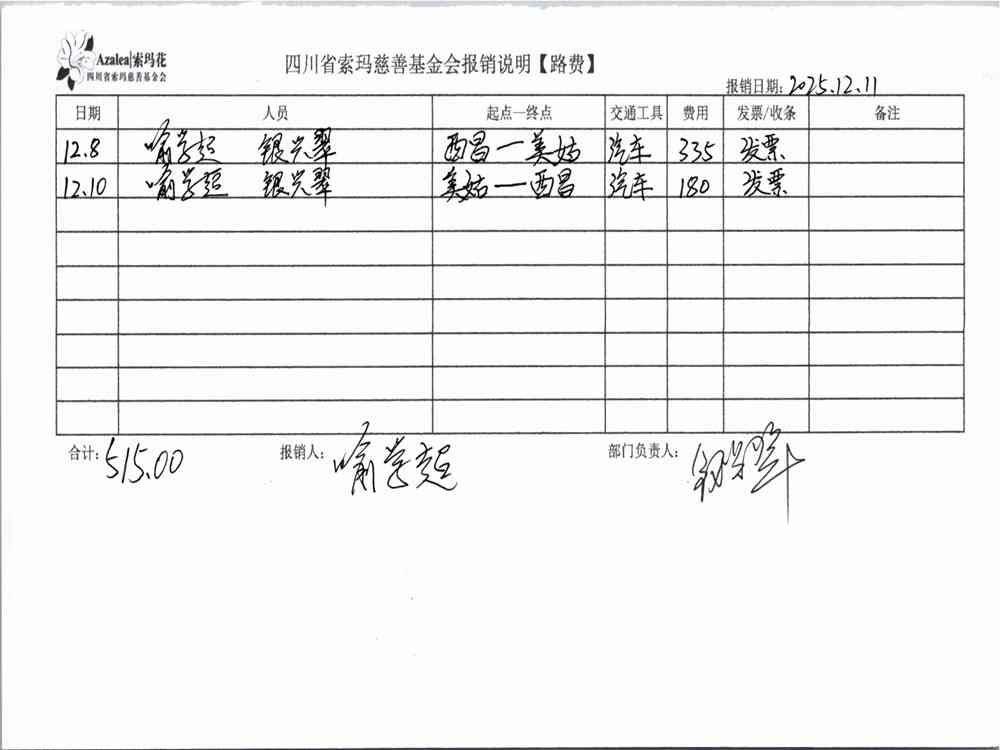 Azalea|索玛花
四川省索玛慈善基金会
四川省索玛慈善基金会报销说明【路费】
报销日期:2025.12.11
日期 人员 起点—终点 交通工具 费用 发票/收条 备注
12.8 喻学超 银兴翠 西昌—美姑 汽车 335 发票
12.10 喻学超 银兴翠 美姑—西昌 汽车 180 发票
合计:515.00 报销人:喻学超 部门负责人: